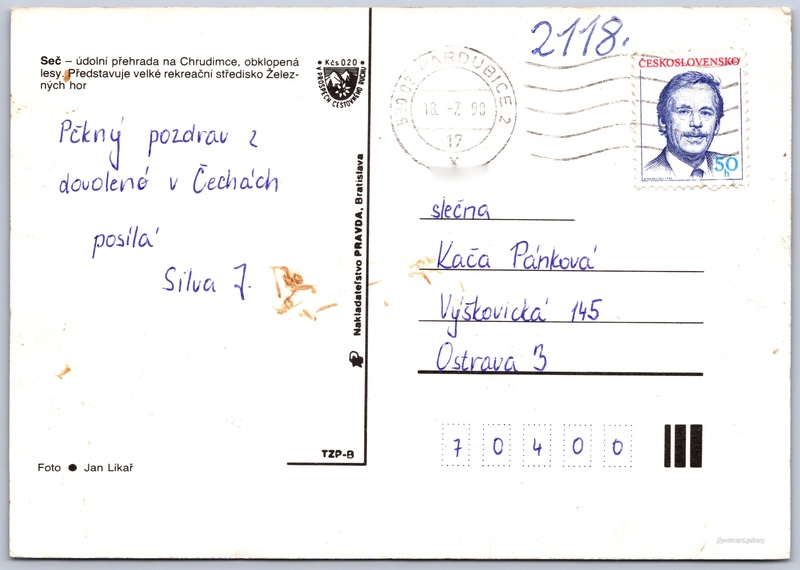 Seč – údolní přehrada na Chrudimce, obklopená
lesy. Představuje velké rekreační středisko Želez-
ných hor
Kčs 0.20
V PROSPĚCH CESTOVNÉHO RUCHU
Pěkný pozdrav z
dovolené v Čechách
posílá
Silva J.
Foto ● Jan Likař
Nakladateľstvo PRAVDA, Bratislava
TZP-8
2118.
PARDUBICE 2
18. -7. 90
17
x
ČESKOSLOVENSKO
50
h
slečna
Kača Pánková
Výškovická 145
Ostrava 3
7 0 4 0 0